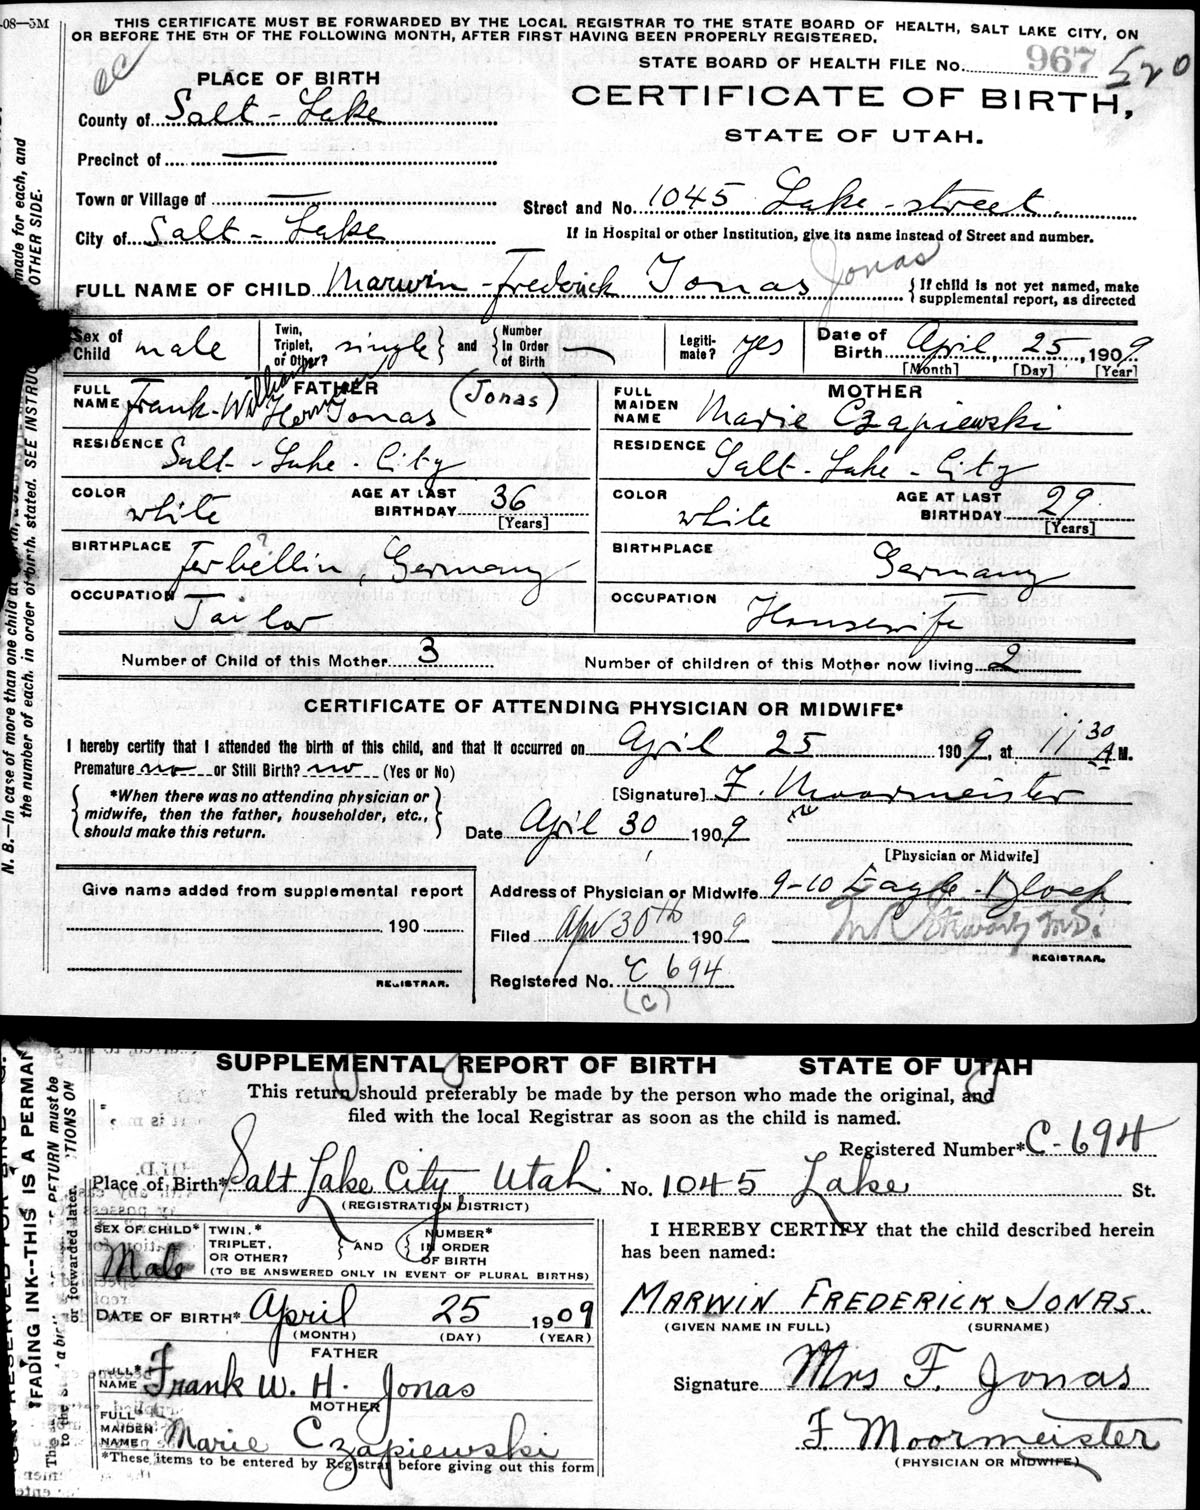 -08—5M
THIS CERTIFICATE MUST BE FORWARDED BY THE LOCAL REGISTRAR TO THE STATE BOARD OF HEALTH, SALT LAKE CITY, ON
OR BEFORE THE 5TH OF THE FOLLOWING MONTH, AFTER FIRST HAVING BEEN PROPERLY REGISTERED.
STATE BOARD OF HEALTH FILE No. 967 520
PLACE OF BIRTH
CERTIFICATE OF BIRTH,
STATE OF UTAH.
County of Salt-Lake
Precinct of —
Town or Village of —
Street and No. 1045 Lake-street.
City of Salt-Lake
If in Hospital or other Institution, give its name instead of Street and number.
Jonas
FULL NAME OF CHILD Marwin-Frederick Jonas { If child is not yet named, make supplemental report, as directed
Sex of Child male Twin, Triplet, or Other? single } and { Number In Order of Birth — Legiti-mate? yes Date of Birth April, 25, 1909
[Month] [Day] [Year]
FATHER
FULL NAME Frank-William Herman Jonas (Jonas)
MOTHER
FULL MAIDEN NAME Marie Czapiewski
RESIDENCE Salt-Lake-City
RESIDENCE Salt-Lake-City
COLOR white AGE AT LAST BIRTHDAY 36 [Years]
COLOR white AGE AT LAST BIRTHDAY 29 [Years]
BIRTHPLACE Ferbellin, Germany
?
BIRTHPLACE Germany
OCCUPATION Tailor
OCCUPATION Housewife
Number of Child of this Mother 3 Number of children of this Mother now living 2
CERTIFICATE OF ATTENDING PHYSICIAN OR MIDWIFE*
I hereby certify that I attended the birth of this child, and that it occurred on April 25 1909, at 11 30 A M.
Premature no or Still Birth? no (Yes or No)
{ *When there was no attending physician or midwife, then the father, householder, etc., should make this return. }
[Signature] F. Moormeister
Date April 30, 1909
[Physician or Midwife]
Give name added from supplemental report
190
REGISTRAR.
Address of Physician or Midwife 9-10 Eagle-Block
Filed Apr 30th 1909
REGISTRAR.
Registered No. C 694
(C)
N. B.—In case of more than one child at
made for each, and
the number of each, in order of birth, stated. SEE INSTRUC
OTHER SIDE.
SUPPLEMENTAL REPORT OF BIRTH STATE OF UTAH
This return should preferably be made by the person who made the original, and
filed with the local Registrar as soon as the child is named.
Registered Number* C-694
Place of Birth* Salt Lake City, Utah No. 1045 Lake St.
(REGISTRATION DISTRICT)
SEX OF CHILD* Male TWIN.* TRIPLET, OR OTHER? } AND { NUMBER* IN ORDER OF BIRTH
(TO BE ANSWERED ONLY IN EVENT OF PLURAL BIRTHS)
DATE OF BIRTH* April 25 1909
(MONTH) (DAY) (YEAR)
FATHER
FULL* NAME Frank W. H. Jonas
MOTHER
FULL* MAIDEN NAME Marie Czapiewski
*These items to be entered by Registrar before giving out this form
I HEREBY CERTIFY that the child described herein
has been named:
MARWIN FREDERICK JONAS.
(GIVEN NAME IN FULL) (SURNAME)
Signature Mrs F. Jonas
F Moormeister
(PHYSICIAN OR MIDWIFE)
FADING INK--THIS IS A PERMAN
RETURN must be
to the
or forwarded later.
TIONS ON